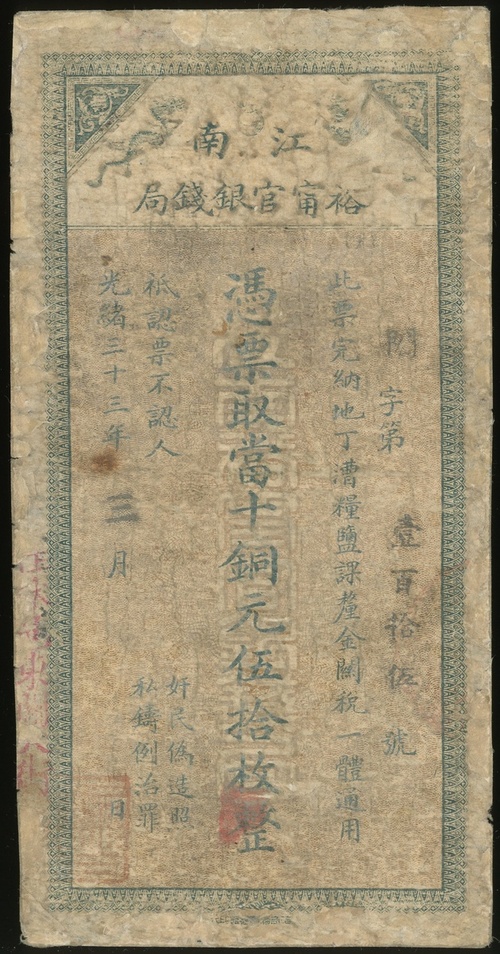 江南
裕甯官銀錢局
字第壹百拾伍號
此票完納地丁漕糧鹽課釐金關稅一體通用
憑票取當十銅元伍拾枚整
祇認票不認人
奸民僞造照
私鑄例治罪
光緒三十三年三月 日